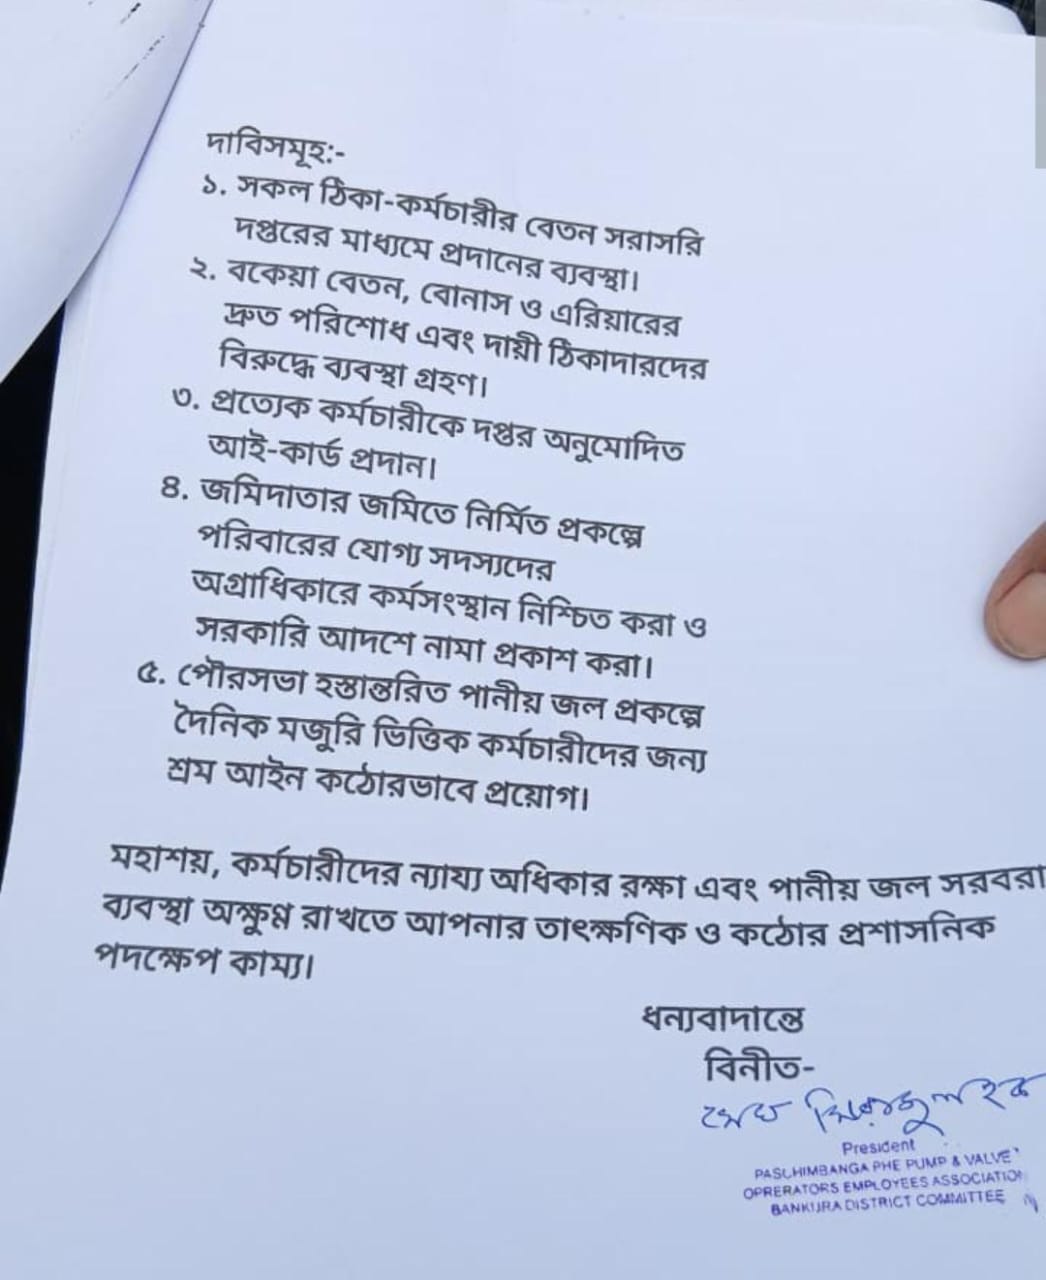 দাবিসমূহ:-
১. সকল ঠিকা-কর্মচারীর বেতন সরাসরি
দপ্তরের মাধ্যমে প্রদানের ব্যবস্থা।
২. বকেয়া বেতন, বোনাস ও এরিয়ারের
দ্রুত পরিশোধ এবং দায়ী ঠিকাদারদের
বিরুদ্ধে ব্যবস্থা গ্রহণ।
৩. প্রত্যেক কর্মচারীকে দপ্তর অনুমোদিত
আই-কার্ড প্রদান।
৪. জমিদাতার জমিতে নির্মিত প্রকল্পে
পরিবারের যোগ্য সদস্যদের
অগ্রাধিকারে কর্মসংস্থান নিশ্চিত করা ও
সরকারি আদশে নামা প্রকাশ করা।
৫. পৌরসভা হস্তান্তরিত পানীয় জল প্রকল্পে
দৈনিক মজুরি ভিত্তিক কর্মচারীদের জন্য
শ্রম আইন কঠোরভাবে প্রয়োগ।
মহাশয়, কর্মচারীদের ন্যায্য অধিকার রক্ষা এবং পানীয় জল সরবরা
ব্যবস্থা অক্ষুণ্ণ রাখতে আপনার তাৎক্ষণিক ও কঠোর প্রশাসনিক
পদক্ষেপ কাম্য।
ধন্যবাদান্তে
বিনীত-
হক
President
PASCHIMBANGA PHE PUMP & VALVE
OPRERATORS EMPLOYEES ASSOCIATION
BANKURA DISTRICT COMMITTEE